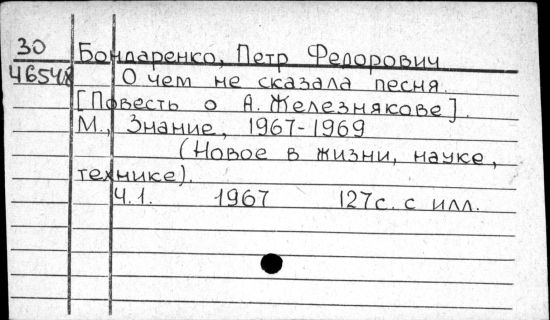 30 Бондаренко, Петр Федорович
О чем не сказала песня.
[Повесть о А. Железнякове].
М., Знание, 1967-1969
(Новое в жизни, науке,
технике).
Ч.1. 1967 127с. с илл.